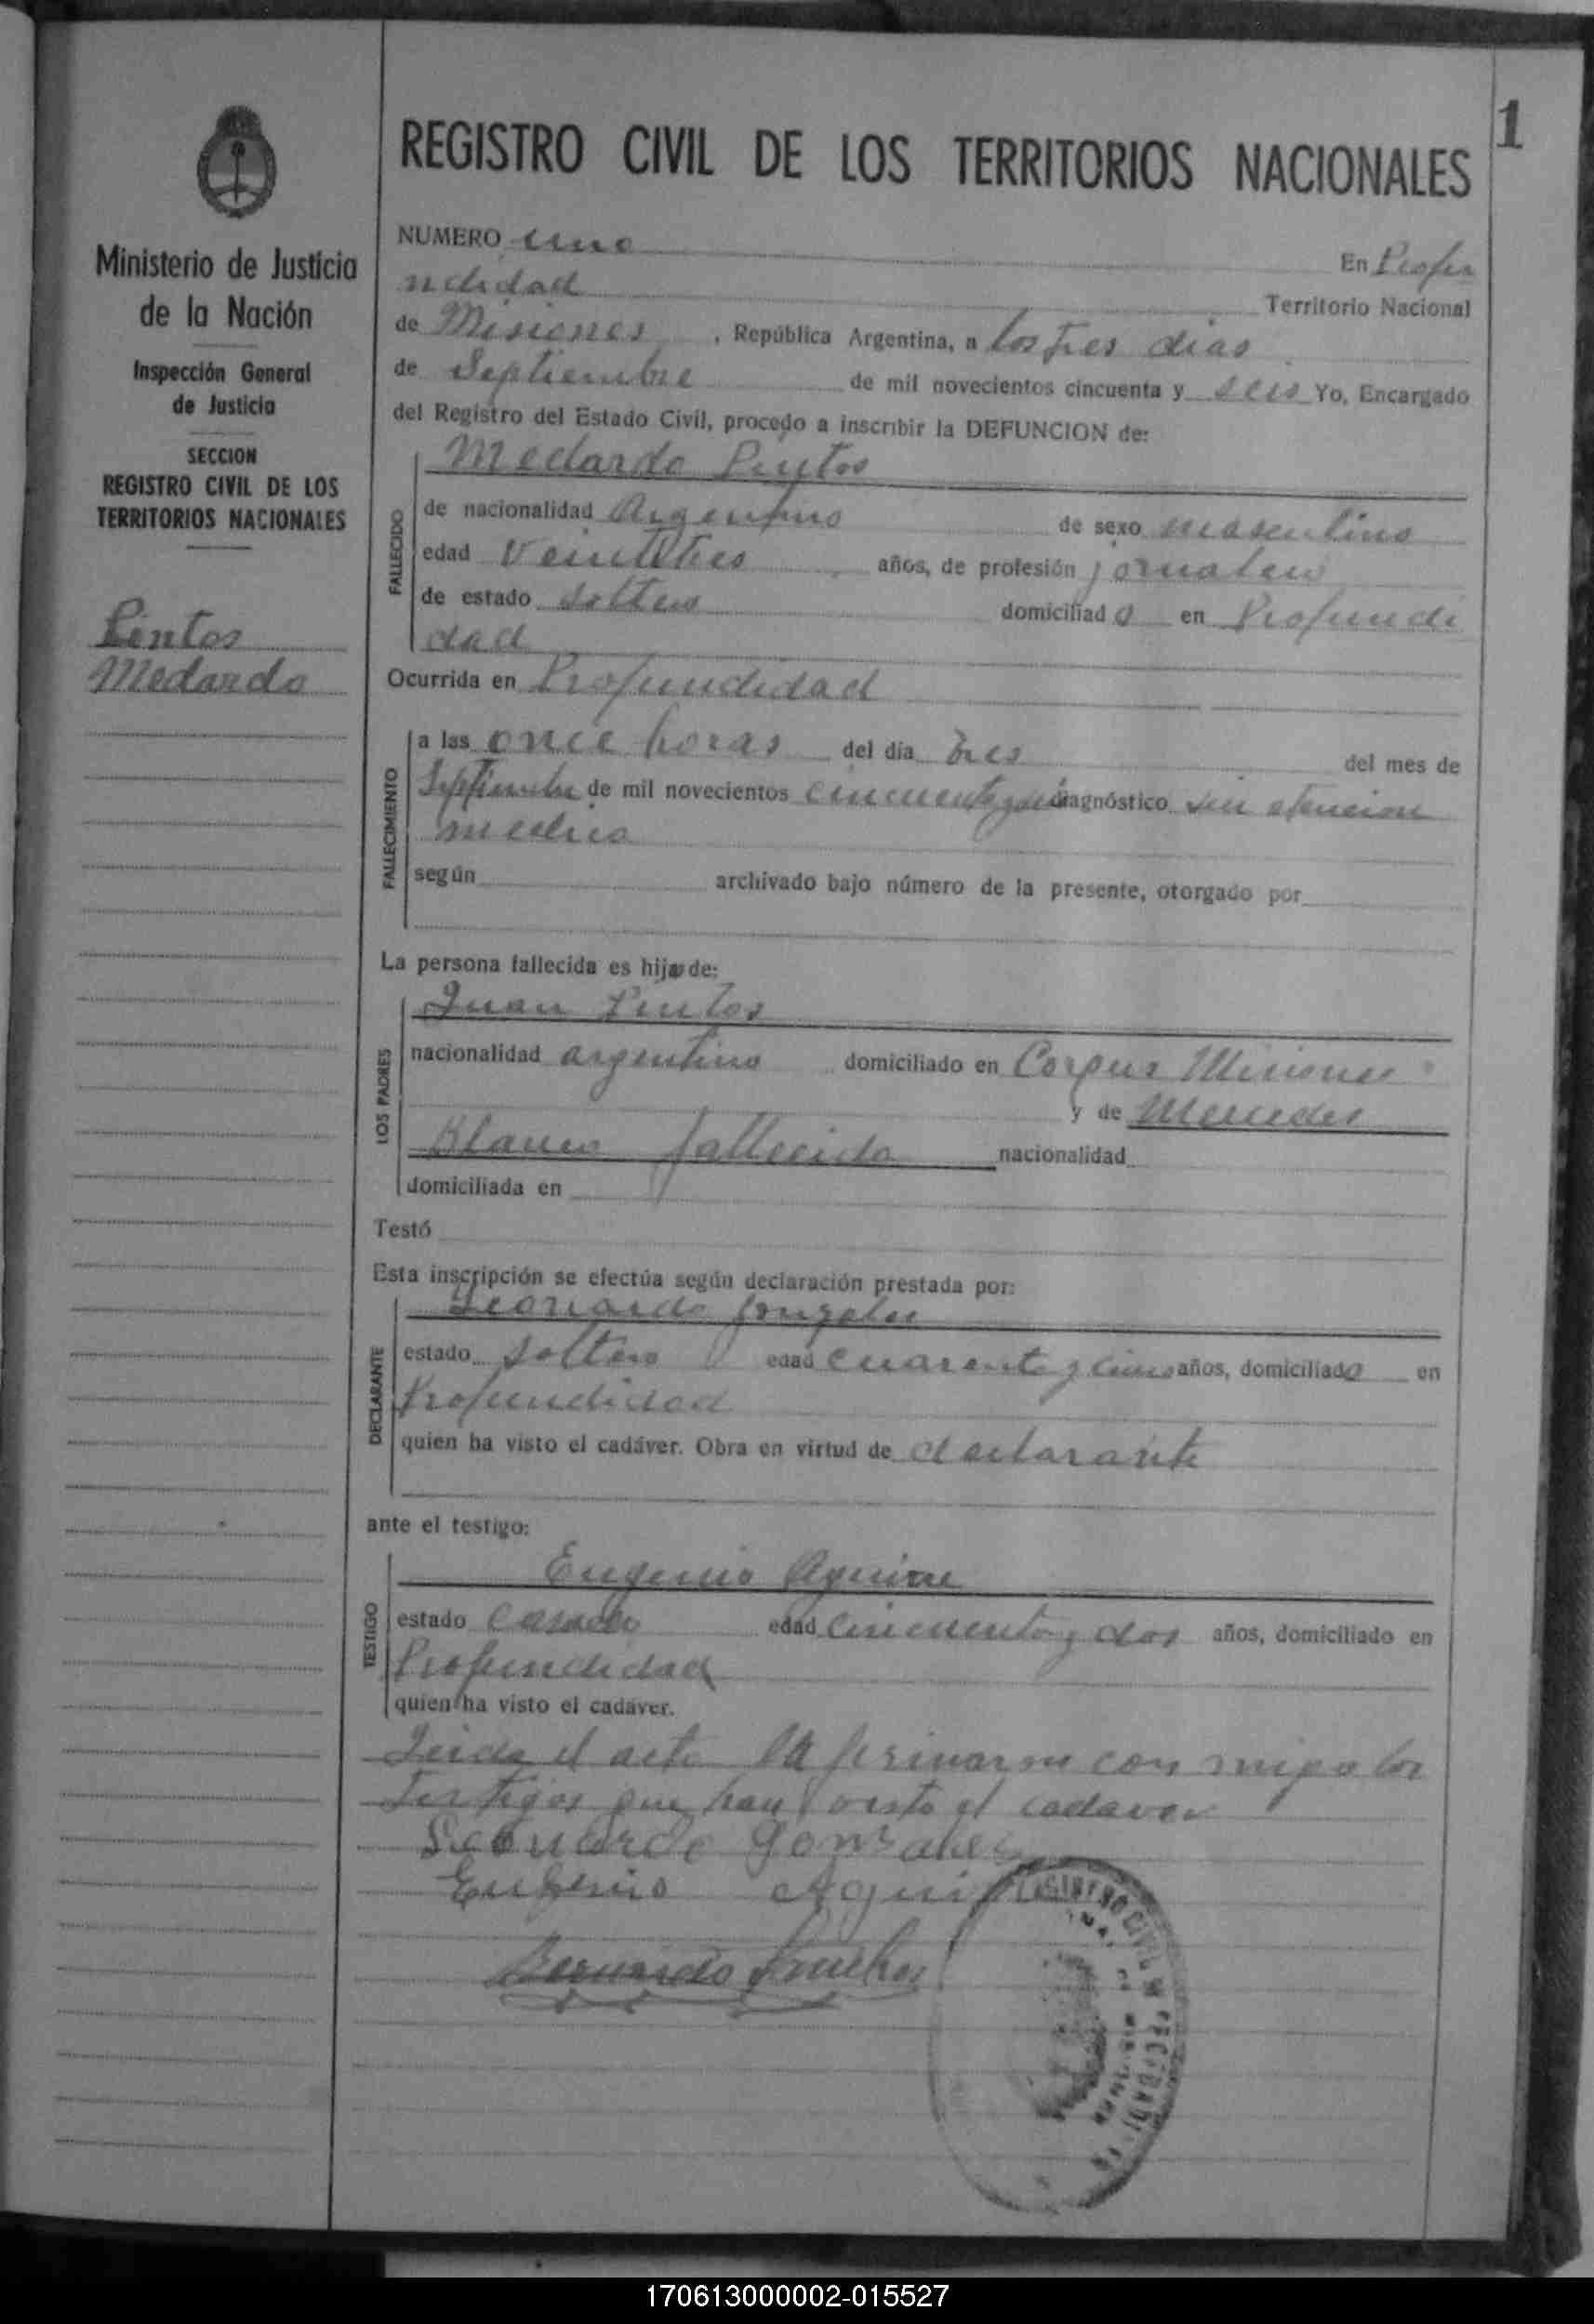 1
REGISTRO CIVIL DE LOS TERRITORIOS NACIONALES
Ministerio de Justicia
de la Nación
Inspección General
de Justicia
SECCION
REGISTRO CIVIL DE LOS
TERRITORIOS NACIONALES
Pintos
Medardo
NUMERO uno En Profu
ndidad Territorio Nacional
de Misiones, República Argentina, a los tres dias
de Septiembre de mil novecientos cincuenta y seis Yo, Encargado
del Registro del Estado Civil, procedo a inscribir la DEFUNCION de:
Medardo Pintos
FALLECIDO
de nacionalidad Argentino de sexo masculino
edad Veintitres años, de profesión jornalero
de estado soltero domiciliado en Profundi
dad
Ocurrida en Profundidad
FALLECIMIENTO
a las once horas del día tres del mes de
Septiembre de mil novecientos cincuenta y seis diagnóstico sin atencion
medica
según archivado bajo número de la presente, otorgado por
La persona fallecida es hijo de:
LOS PADRES
Juan Pintos
nacionalidad argentino domiciliado en Corpus Misiones
y de Mercedes
Blanco fallecida nacionalidad
domiciliada en
Testó
Esta inscripción se efectúa según declaración prestada por:
DECLARANTE
Leonardo Gonzales
estado soltero edad cuarenta y cinco años, domiciliado en
Profundidad
quien ha visto el cadáver. Obra en virtud de declarante
ante el testigo:
TESTIGO
Eugenio Aguirre
estado Casado edad cincuenta y dos años, domiciliado en
Profundidad
quien ha visto el cadáver.
Leida el acta la firmaron con migo los
testigos que han visto el cadaver
Leonardo Gonzales
Eugenio Aguirre
REGISTRO CIVIL
170613000002-015527